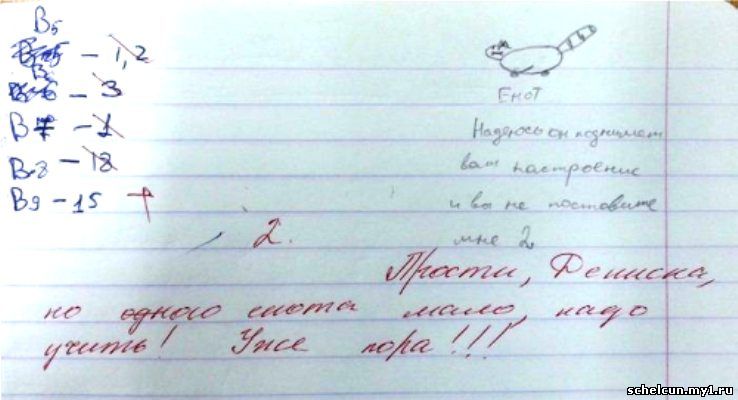 В5 – 1,2
В6 – 3
В7 – 1
В8 – 18
В9 – 15 +
Енот
Надеюсь он поднимет
вам настроение
и вы не поставите
мне 2
2.
Прости, Дениска,
но одного енота мало, надо
учить! Уже пора!!!
schelcun.my1.ru